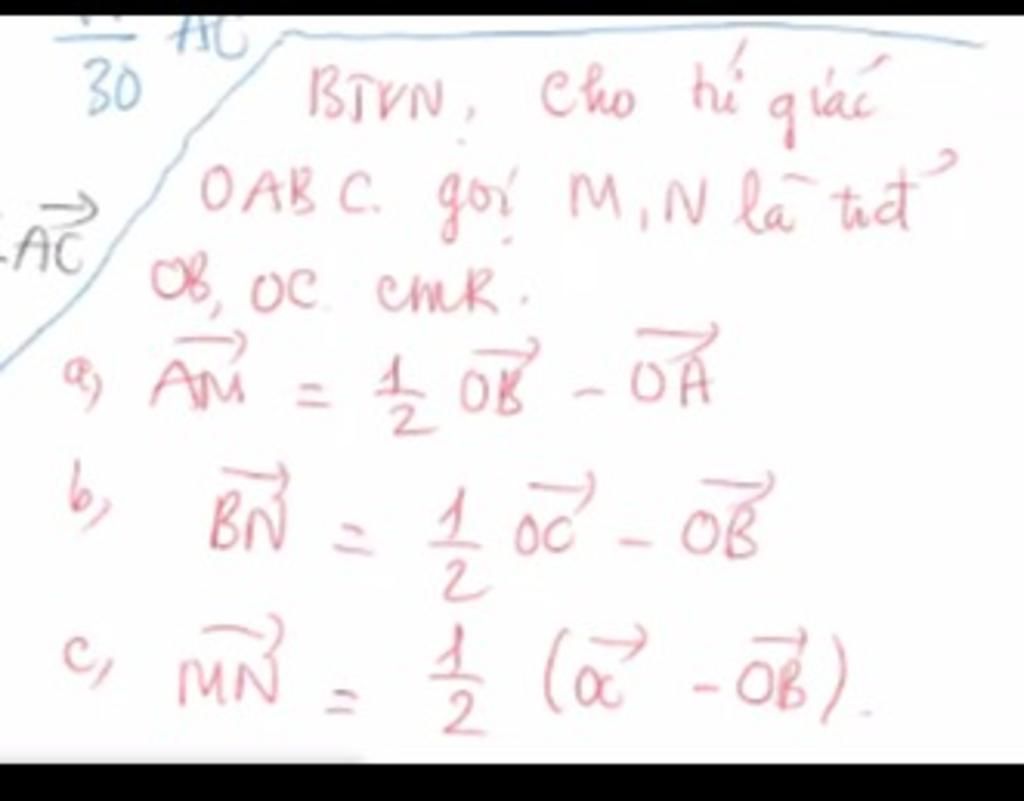 30 AC
AC
BTVN, Cho tứ giác
OABC. gọi M, N là tđ
OB, OC CMR.
a, AM = 1/2 OB - OA
b, BN = 1/2 OC - OB
c, MN = 1/2 (OC - OB).